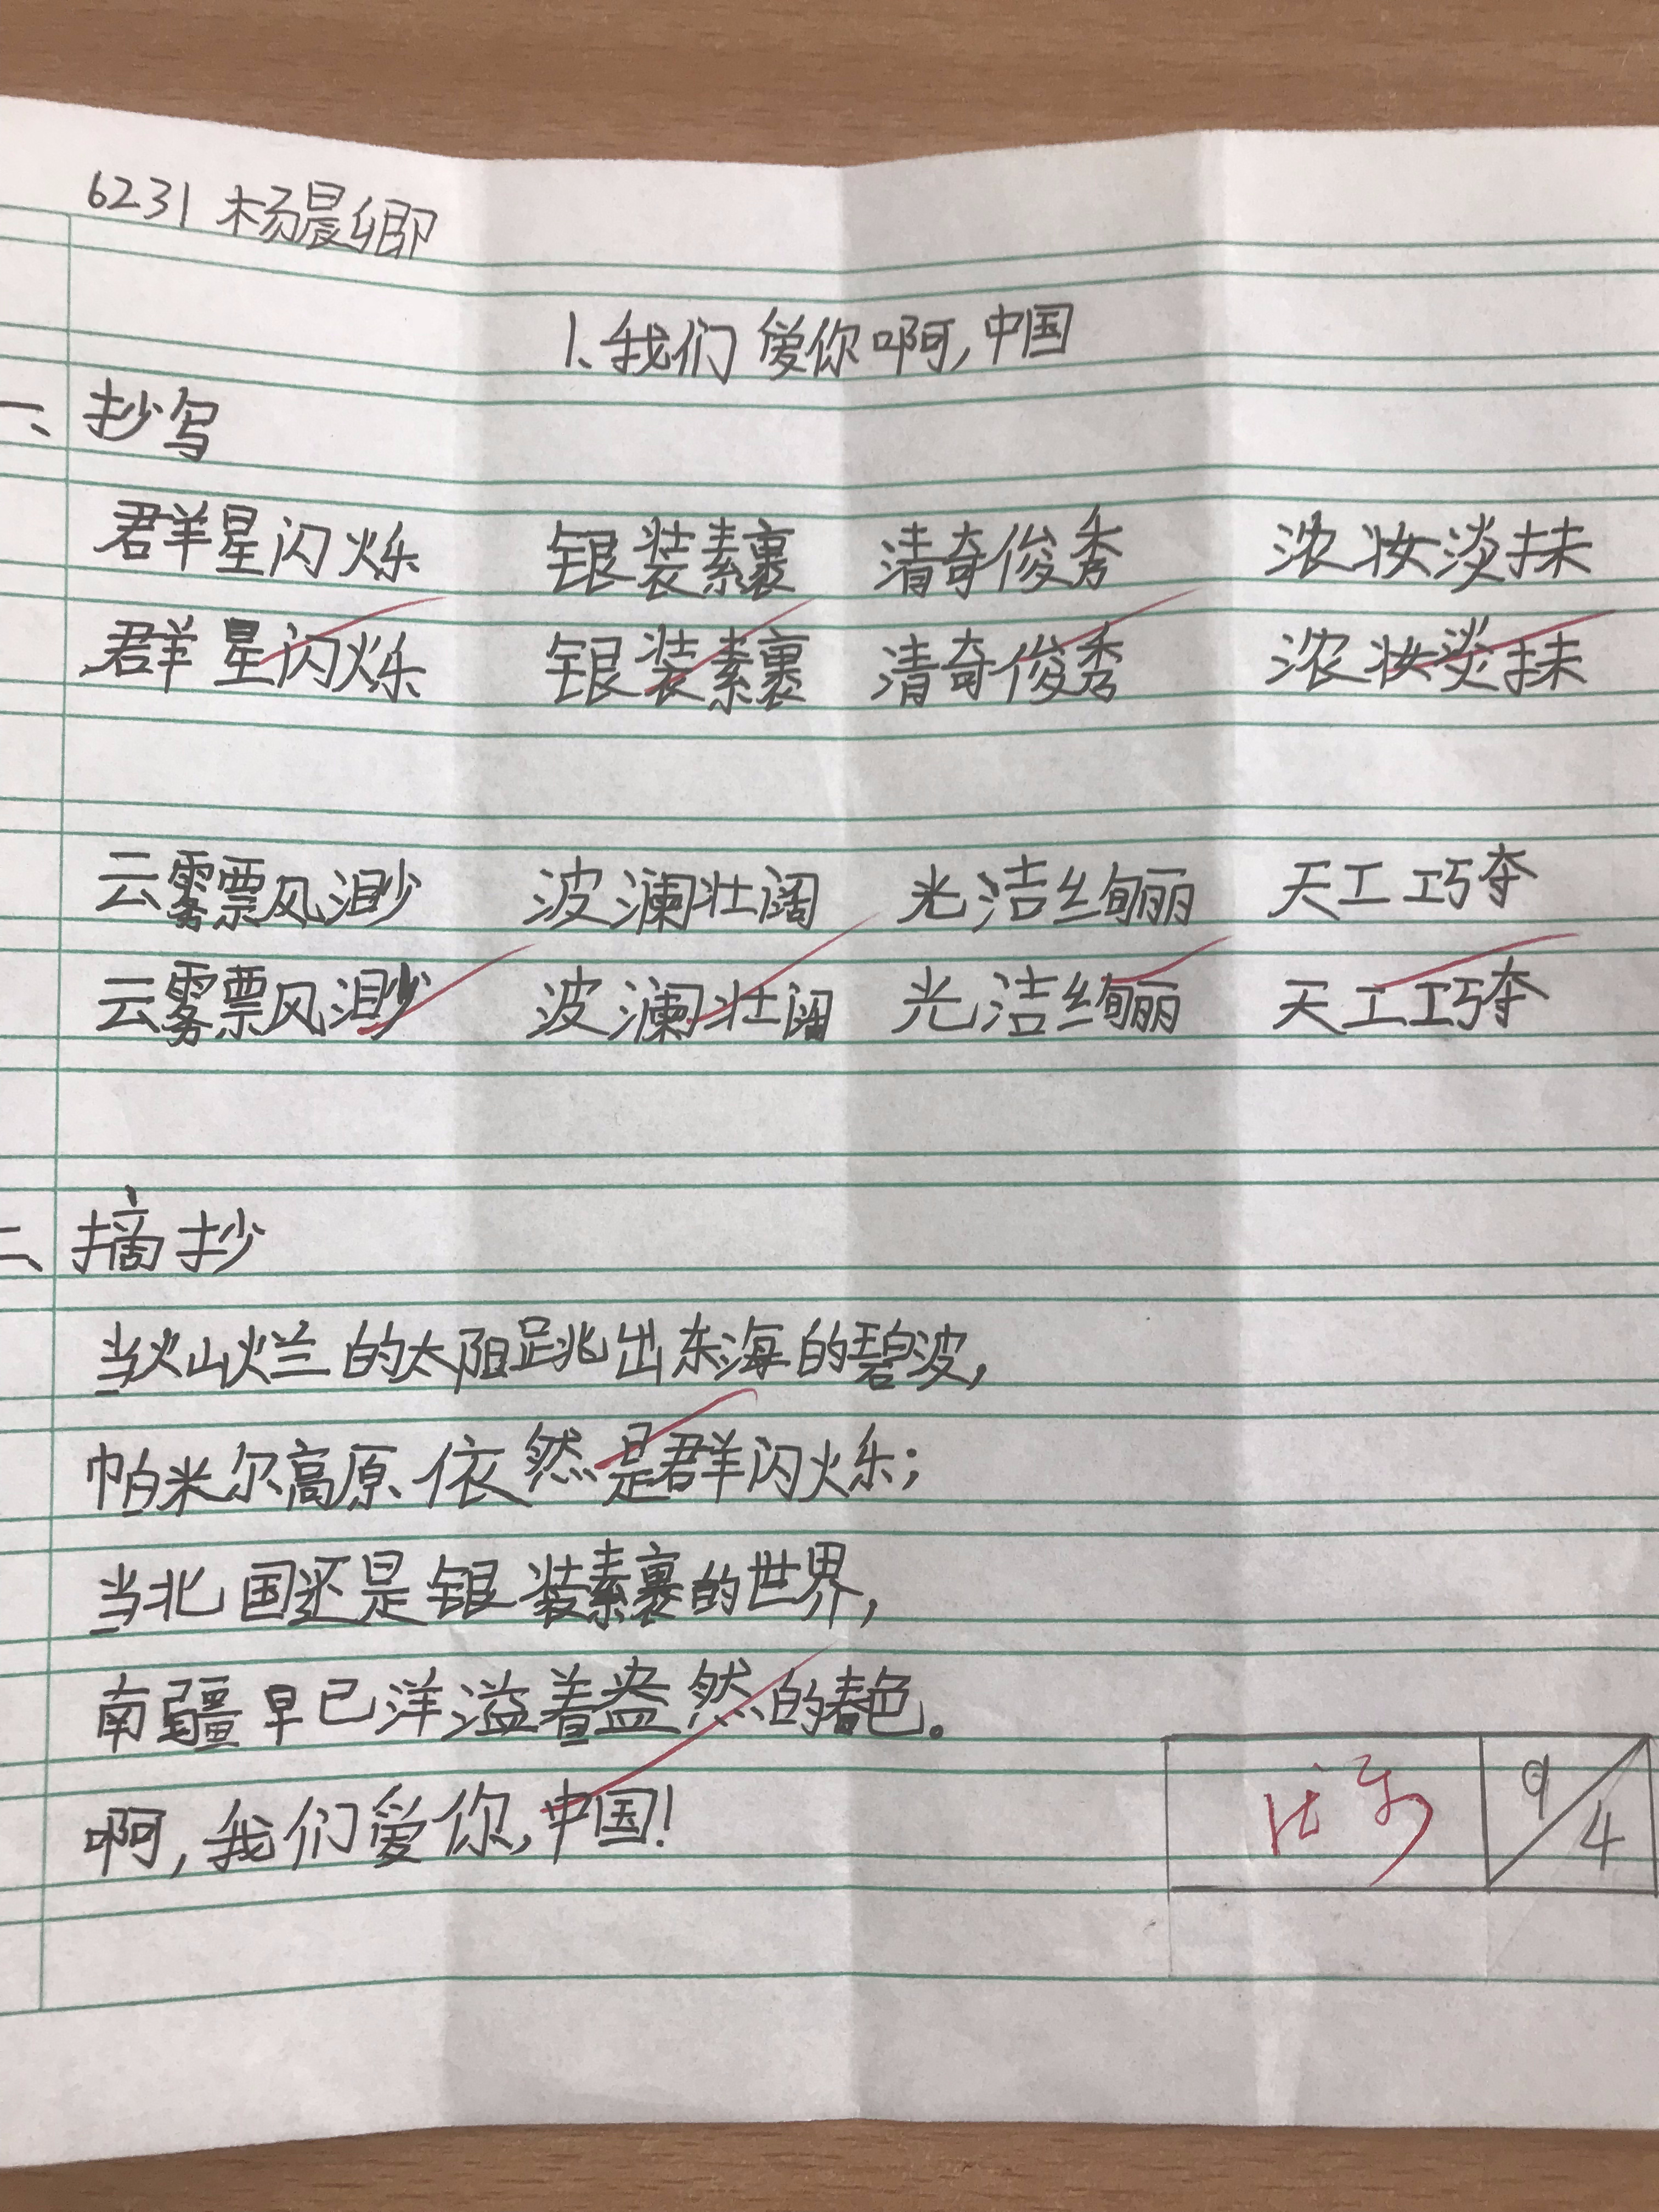 6231 杨晨卿
1、我们爱你啊,中国
一、抄写
群星闪烁 银装素裹 清奇俊秀 浓妆淡抹
群星闪烁 银装素裹 清奇俊秀 浓妆淡抹
云雾飘渺 波澜壮阔 光洁绚丽 天工巧夺
云雾飘渺 波澜壮阔 光洁绚丽 天工巧夺
二、摘抄
当灿烂的太阳跳出东海的碧波,
帕米尔高原依然是群闪烁;
当北国还是银装素裹的世界,
南疆早已洋溢着盎然的春色。
啊,我们爱你,中国!
9/4